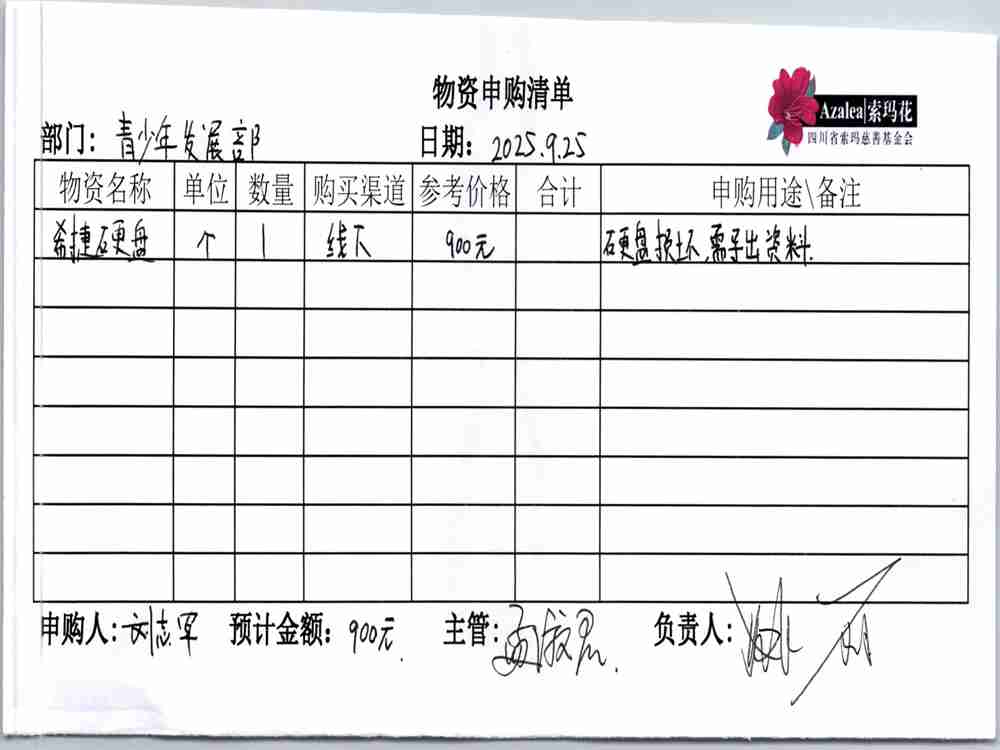 物资申购清单
Azalea|索玛花
四川省索玛慈善基金会
部门：青少年发展部 日期：2025.9.25
物资名称 单位 数量 购买渠道 参考价格 合计 申购用途\备注
希捷硬盘 个 1 线下 900元 硬盘损坏,需导出资料.
申购人：刘志军 预计金额：900元. 主管： 负责人：